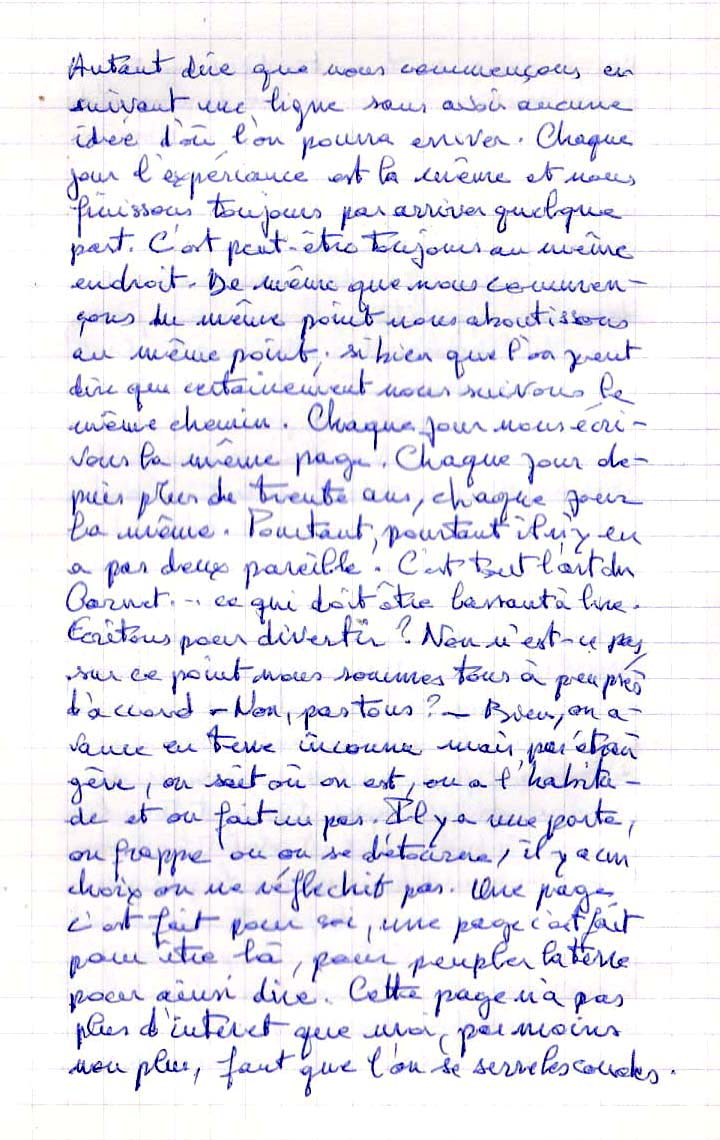 Autant dire que nous commençons en
suivant une ligne sans avoir aucune
idée d'où l'on pourra arriver. Chaque
jour l'expérience est la même et nous
finissons toujours par arriver quelque
part. C'est peut-être toujours au même
endroit. De même que nous commen-
çons du même point nous aboutissons
au même point, si bien que l'on peut
dire que certainement nous suivons le
même chemin. Chaque jour nous écri-
vons la même page. Chaque jour de-
puis plus de trente ans, chaque jour
la même. Pourtant, pourtant il n'y en
a pas deux pareille. C'est tout l'art du
Carnet... ce qui doit être lassant à lire.
Ecrit-ons pour divertir ? Non n'est-ce pas,
sur ce point nous sommes tous à peu près
d'accord - Non, pas tous ? - Bien, on a-
vance en terre inconnue mais, pas étran
gère, on sait où on est, on a l'habitu-
de et on fait un pas. Il y a une porte,
on frappe ou on se détourne, il y a un
choix on ne réfléchit pas. Une page
c'est fait pour soi, une page c'est fait
pour être là, pour peupler la terre
pour ainsi dire. Cette page n'a pas
plus d'intérêt que moi, pas moins
non plus, faut que l'on se serre les coudes.